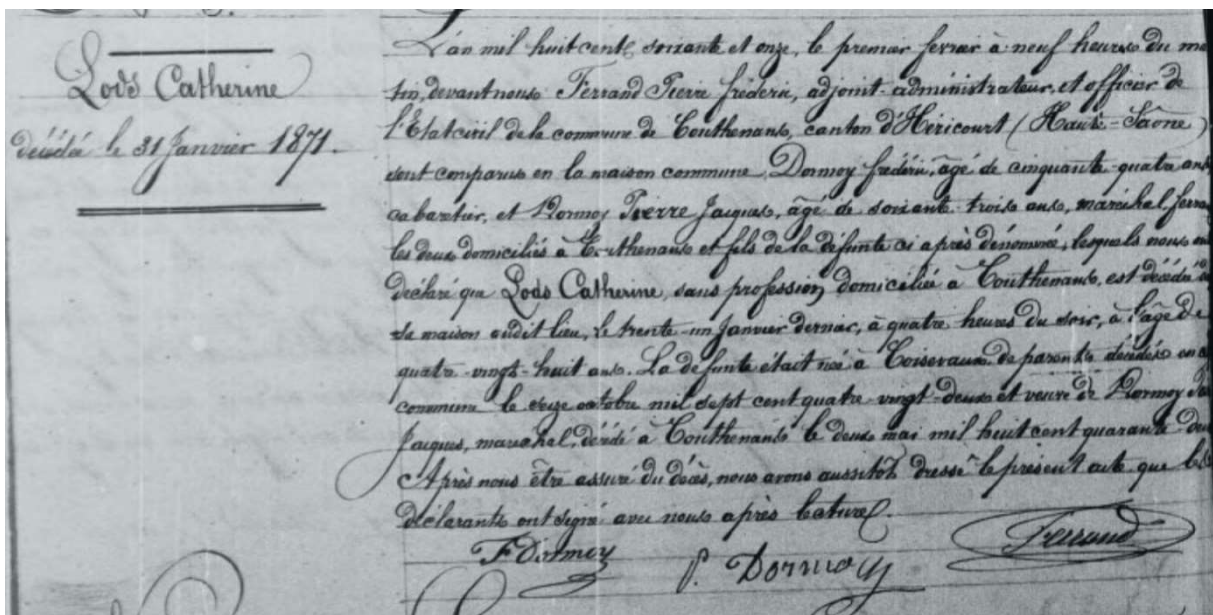 Lods Catherine
décédée le 31 Janvier 1871.
L'an mil huit cent soixante et onze, le premier fevrier à neuf heures du ma
tin, devant nous Ferrand Pierre frédéric, adjoint-administrateur, et officier de
l'Etat civil de la commune de Couthenans, canton d'Héricourt (Haute-Saône)
sont comparus en la maison commune, Dormoy frédéric, âgé de cinquante-quatre ans,
cabaretier, et Dormoy Pierre Jacques, âgé de soixante-trois ans, maréchal ferra
les deux domiciliés à Couthenans et fils de la défunte ci après dénommée, lesquels nous on
déclaré que Lods Catherine, sans profession, domiciliée à Couthenans, est décédée
sa maison audit lieu, le trente-un Janvier dernier, à quatre heures du soir, à l'âge de
quatre-vingt-huit ans. La défunte était née à Coisevaux de parents décédés en
commune le seize octobre mil sept cent quatre-vingt-deux et veuve de Dormoy
Jacques, maréchal, décédé à Couthenans le deux mai mil huit cent quarante
Après nous être assuré du décès, nous avons aussitôt dressé le présent acte que les
déclarants ont signé avec nous après lecture.
F Dormoy
P. Dormoy
Ferrand